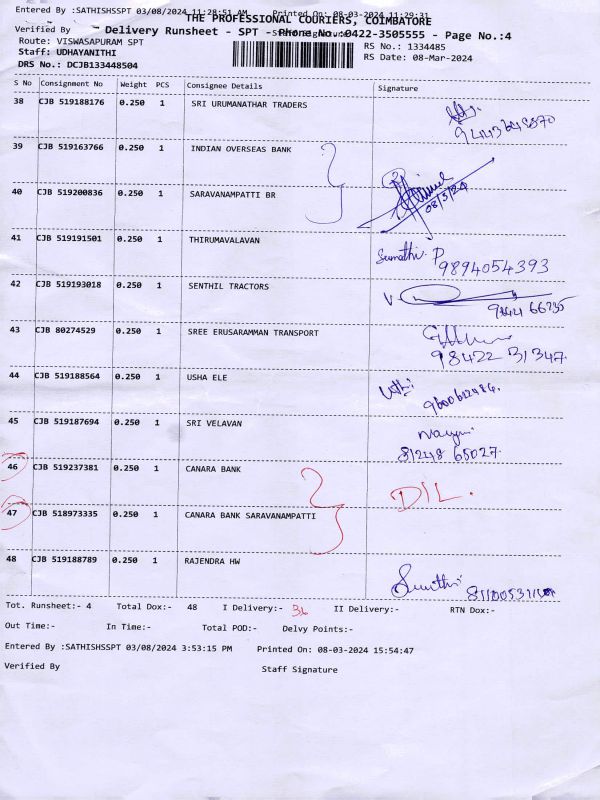 Entered By :SATHISHSSPT 03/08/2024 11:28:51 AM Printed On: 08-03-2024 11:29:31
THE PROFESSIONAL COURIERS, COIMBATORE
Verified By Staff Signature
Delivery Runsheet - SPT - Phone No.:0422-3505555 - Page No.:4
Route: VISWASAPURAM SPT RS No.: 1334485
Staff: UDHAYANITHI RS Date: 08-Mar-2024
DRS No.: DCJB133448504
S No Consignment No Weight PCS Consignee Details Signature
38 CJB 519188176 0.250 1 SRI URUMANATHAR TRADERS
39 CJB 519163766 0.250 1 INDIAN OVERSEAS BANK
40 CJB 519200836 0.250 1 SARAVANAMPATTI BR
08/3/24
41 CJB 519191501 0.250 1 THIRUMAVALAVAN
Sumathi. P
9894054393
42 CJB 519193018 0.250 1 SENTHIL TRACTORS
43 CJB 80274529 0.250 1 SREE ERUSARAMMAN TRANSPORT
98422 31347.
44 CJB 519188564 0.250 1 USHA ELE
45 CJB 519187694 0.250 1 SRI VELAVAN
81248 65027.
46 CJB 519237381 0.250 1 CANARA BANK
DIL.
47 CJB 518973335 0.250 1 CANARA BANK SARAVANAMPATTI
48 CJB 519188789 0.250 1 RAJENDRA HW
Tot. Runsheet:- 4 Total Dox:- 48 I Delivery:- 36 II Delivery:- RTN Dox:-
Out Time:- In Time:- Total POD:- Delvy Points:-
Entered By :SATHISHSSPT 03/08/2024 3:53:15 PM Printed On: 08-03-2024 15:54:47
Verified By Staff Signature